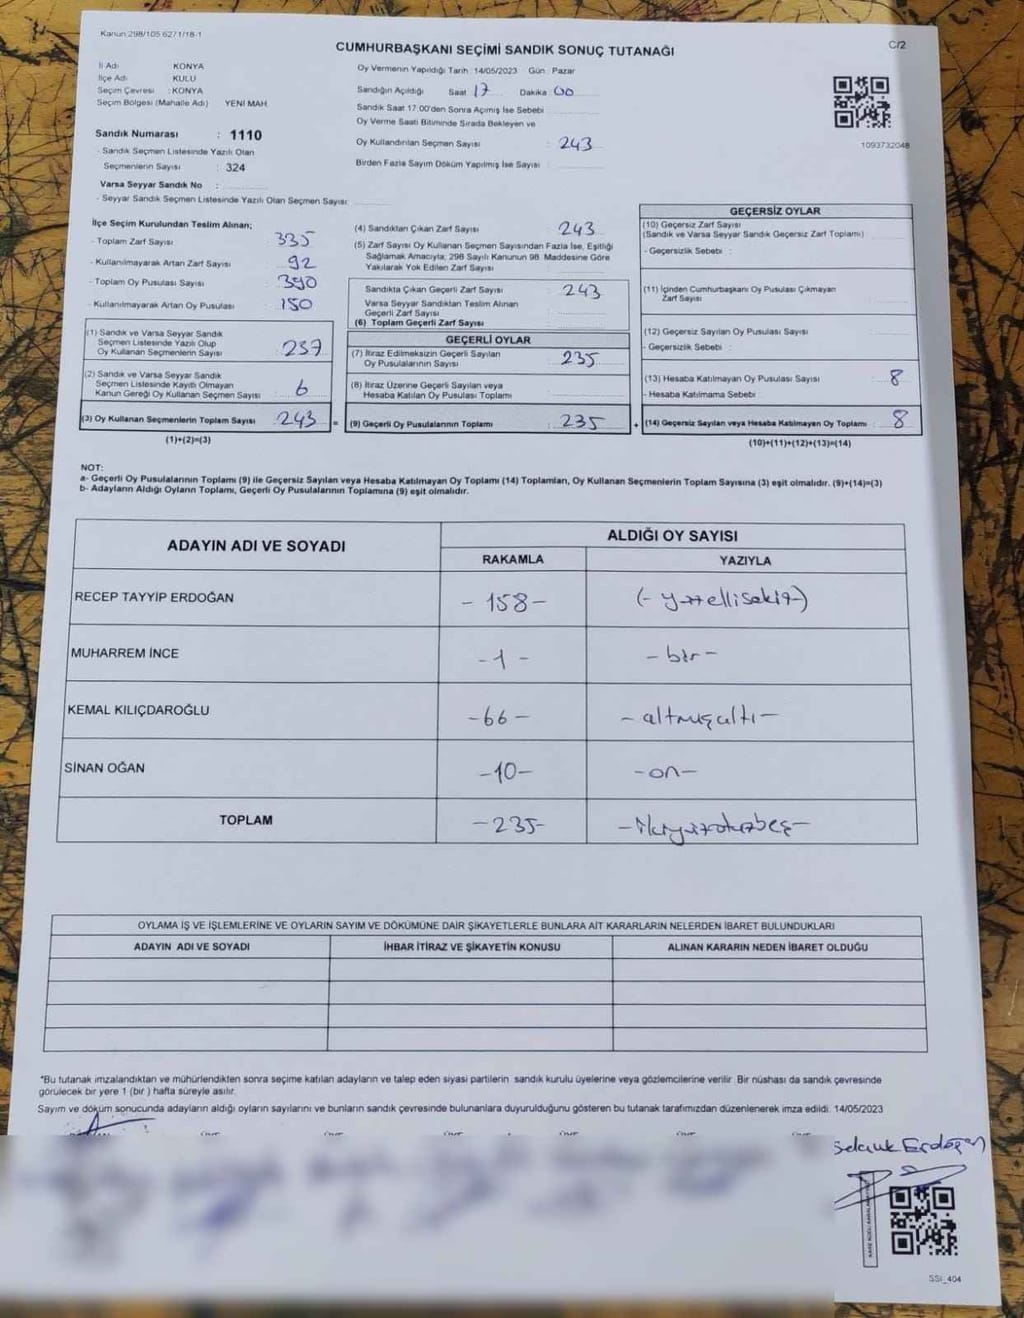 Kanun 298/105 627/1/18-1
CUMHURBAŞKANI SEÇİMİ SANDIK SONUÇ TUTANAĞI
C/2
İl Adı : KONYA
İlçe Adı : KULU
Seçim Çevresi : KONYA
Seçim Bölgesi (Mahalle Adı) YENİ MAH.
Sandık Numarası : 1110
- Sandık Seçmen Listesinde Yazılı Olan
Seçmenlerin Sayısı : 324
Varsa Seyyar Sandık No :
- Seyyar Sandık Seçmen Listesinde Yazılı Olan Seçmen Sayısı:
Oy Vermenin Yapıldığı Tarih :14/05/2023 Gün : Pazar
Sandığın Açıldığı Saat 17 Dakika 00
Sandık Saat 17:00'den Sonra Açımış İse Sebebi :
Oy Verme Saati Bitiminde Sırada Bekleyen ve
Oy Kullandırılan Seçmen Sayısı : 243
Birden Fazla Sayım Döküm Yapılmış İse Sayısı :
1093732048
İlçe Seçim Kurulundan Teslim Alınan;
- Toplam Zarf Sayısı : 335
- Kullanılmayarak Artan Zarf Sayısı : 92
- Toplam Oy Pusulası Sayısı : 390
- Kullanılmayarak Artan Oy Pusulası : 150
(1) Sandık ve Varsa Seyyar Sandık
Seçmen Listesinde Yazılı Olup
Oy Kullanan Seçmenlerin Sayısı : 237
(2) Sandık ve Varsa Seyyar Sandık
Seçmen Listesinde Kayıtlı Olmayan
Kanun Gereği Oy Kullanan Seçmen Sayısı : 6
(3) Oy Kullanan Seçmenlerin Toplam Sayısı : 243
(1)+(2)=(3)
(4) Sandıktan Çıkan Zarf Sayısı : 243
(5) Zarf Sayısı Oy Kullanan Seçmen Sayısından Fazla İse, Eşitliği
Sağlamak Amacıyla; 298 Sayılı Kanunun 98. Maddesine Göre
Yakılarak Yok Edilen Zarf Sayısı :
Sandıkta Çıkan Geçerli Zarf Sayısı : 243
Varsa Seyyar Sandıktan Teslim Alınan
Geçerli Zarf Sayısı :
(6) Toplam Geçerli Zarf Sayısı :
GEÇERLİ OYLAR
(7) İtiraz Edilmeksizin Geçerli Sayılan
Oy Pusulalarının Sayısı : 235
(8) İtiraz Üzerine Geçerli Sayılan veya
Hesaba Katılan Oy Pusulası Toplamı :
= (9) Geçerli Oy Pusulalarının Toplamı : 235
GEÇERSİZ OYLAR
(10) Geçersiz Zarf Sayısı
(Sandık ve Varsa Seyyar Sandık Geçersiz Zarf Toplamı) :
- Geçersizlik Sebebi :
(11) İçinden Cumhurbaşkanı Oy Pusulası Çıkmayan
Zarf Sayısı :
(12) Geçersiz Sayılan Oy Pusulası Sayısı :
- Geçersizlik Sebebi :
(13) Hesaba Katılmayan Oy Pusulası Sayısı : 8
- Hesaba Katılmama Sebebi :
+ (14) Geçersiz Sayılan veya Hesaba Katılmayan Oy Toplamı : 8
(10)+(11)+(12)+(13)=(14)
NOT:
a- Geçerli Oy Pusulalarının Toplamı (9) ile Geçersiz Sayılan veya Hesaba Katılmayan Oy Toplamı (14) Toplamları, Oy Kullanan Seçmenlerin Toplam Sayısına (3) eşit olmalıdır. (9)+(14)=(3)
b- Adayların Aldığı Oyların Toplamı, Geçerli Oy Pusulalarının Toplamına (9) eşit olmalıdır.
ADAYIN ADI VE SOYADI
ALDIĞI OY SAYISI
RAKAMLA
YAZIYLA
RECEP TAYYİP ERDOĞAN - 158 - (- yüzellisekiz -)
MUHARREM İNCE - 1 - - bir -
KEMAL KILIÇDAROĞLU - 66 - - altmışaltı -
SİNAN OĞAN - 10 - - on -
TOPLAM - 235 - - ikiyüzotuzbeş -
OYLAMA İŞ VE İŞLEMLERİNE VE OYLARIN SAYIM VE DÖKÜMÜNE DAİR ŞİKAYETLERLE BUNLARA AİT KARARLARIN NELERDEN İBARET BULUNDUKLARI
ADAYIN ADI VE SOYADI
İHBAR İTİRAZ VE ŞİKAYETİN KONUSU
ALINAN KARARIN NEDEN İBARET OLDUĞU
*Bu tutanak imzalandıktan ve mühürlendikten sonra seçime katılan adayların ve talep eden siyasi partilerin sandık kurulu üyelerine veya gözlemcilerine verilir. Bir nüshası da sandık çevresinde
görülecek bir yere 1 (bir ) hafta süreyle asılır.
Sayım ve döküm sonucunda adayların aldığı oyların sayılarını ve bunların sandık çevresinde bulunanlara duyurulduğunu gösteren bu tutanak tarafımızdan düzenlenerek imza edildi. 14/05/2023
Selçuk Erdoğan
SSI_404